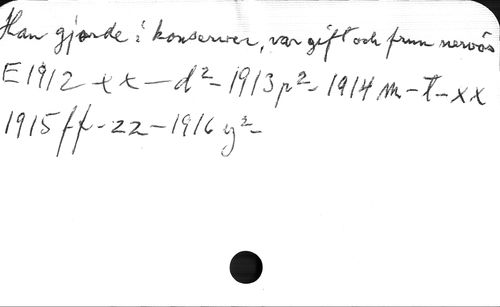 Han gjorde i konserver, var gift och frun nervös
E 1912 xx – d² – 1913 p² – 1914 m – t – xx
1915 ff – zz – 1916 y² –